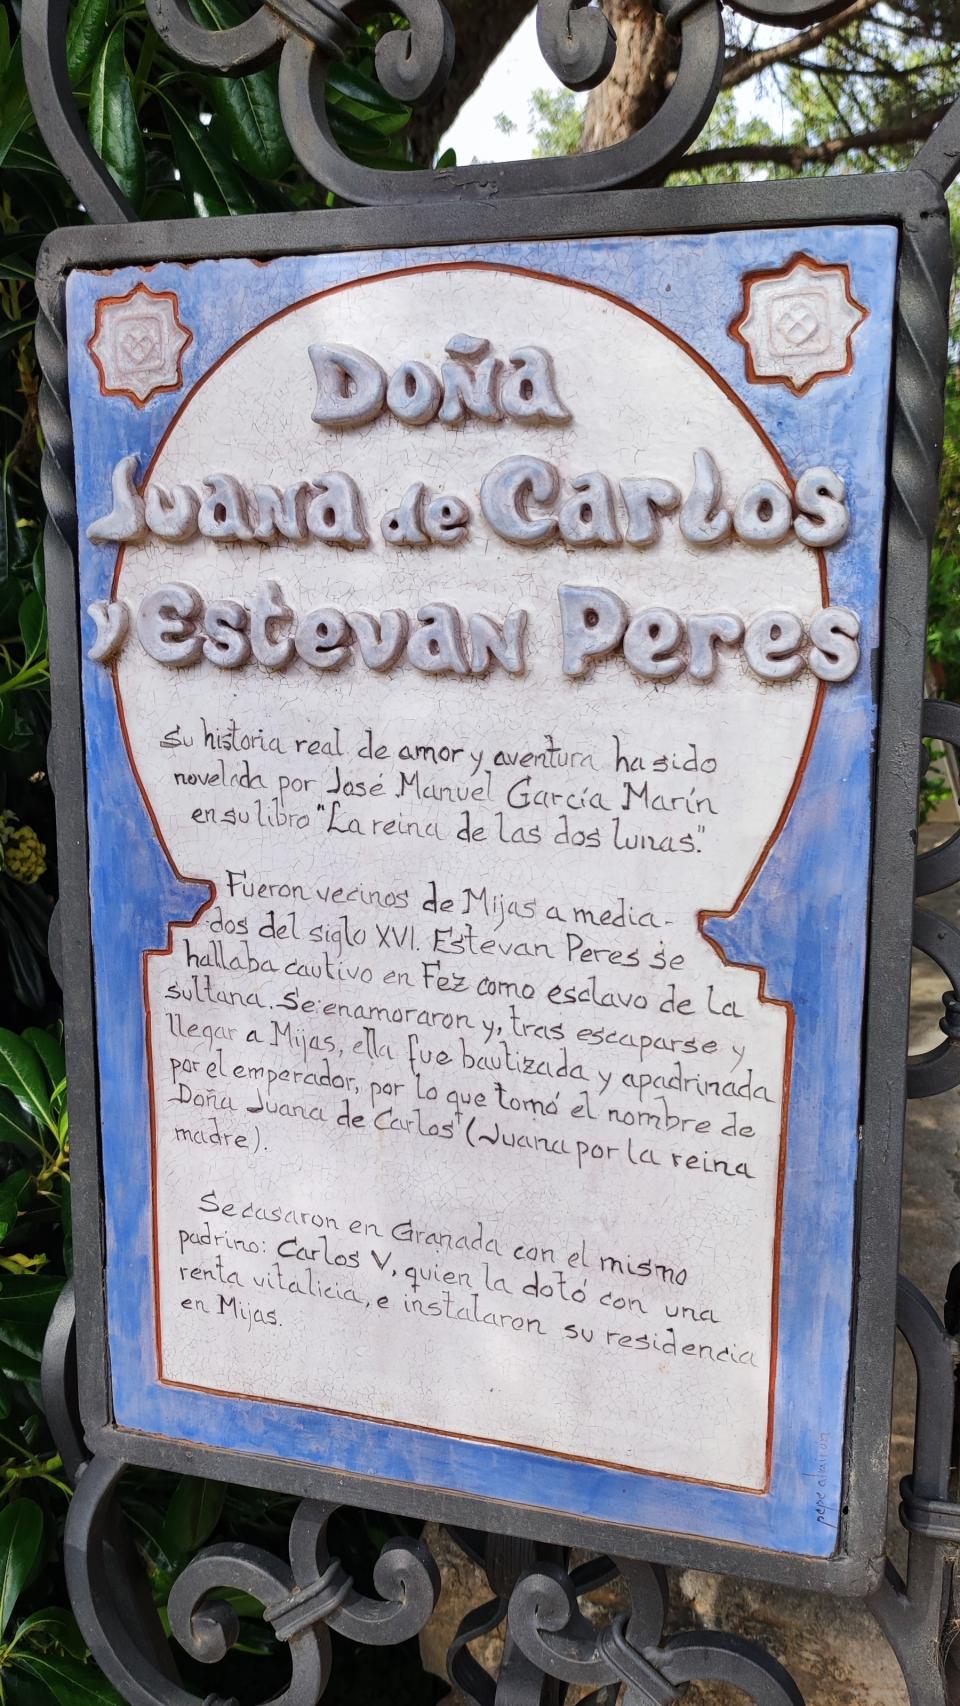 Doña
Juana de Carlos
y Estevan Peres
Su historia real de amor y aventura ha sido
novelada por José Manuel García Marín
en su libro "La reina de las dos lunas."
Fueron vecinos de Mijas a media-
dos del siglo XVI. Estevan Peres se
hallaba cautivo en Fez como esclavo de la
sultana. Se enamoraron y, tras escaparse y
llegar a Mijas, ella fue bautizada y apadrinada
por el emperador, por lo que tomó el nombre de
Doña Juana de Carlos (Juana por la reina
madre).
Se casaron en Granada con el mismo
padrino: Carlos V, quien la dotó con una
renta vitalicia, e instalaron su residencia
en Mijas.